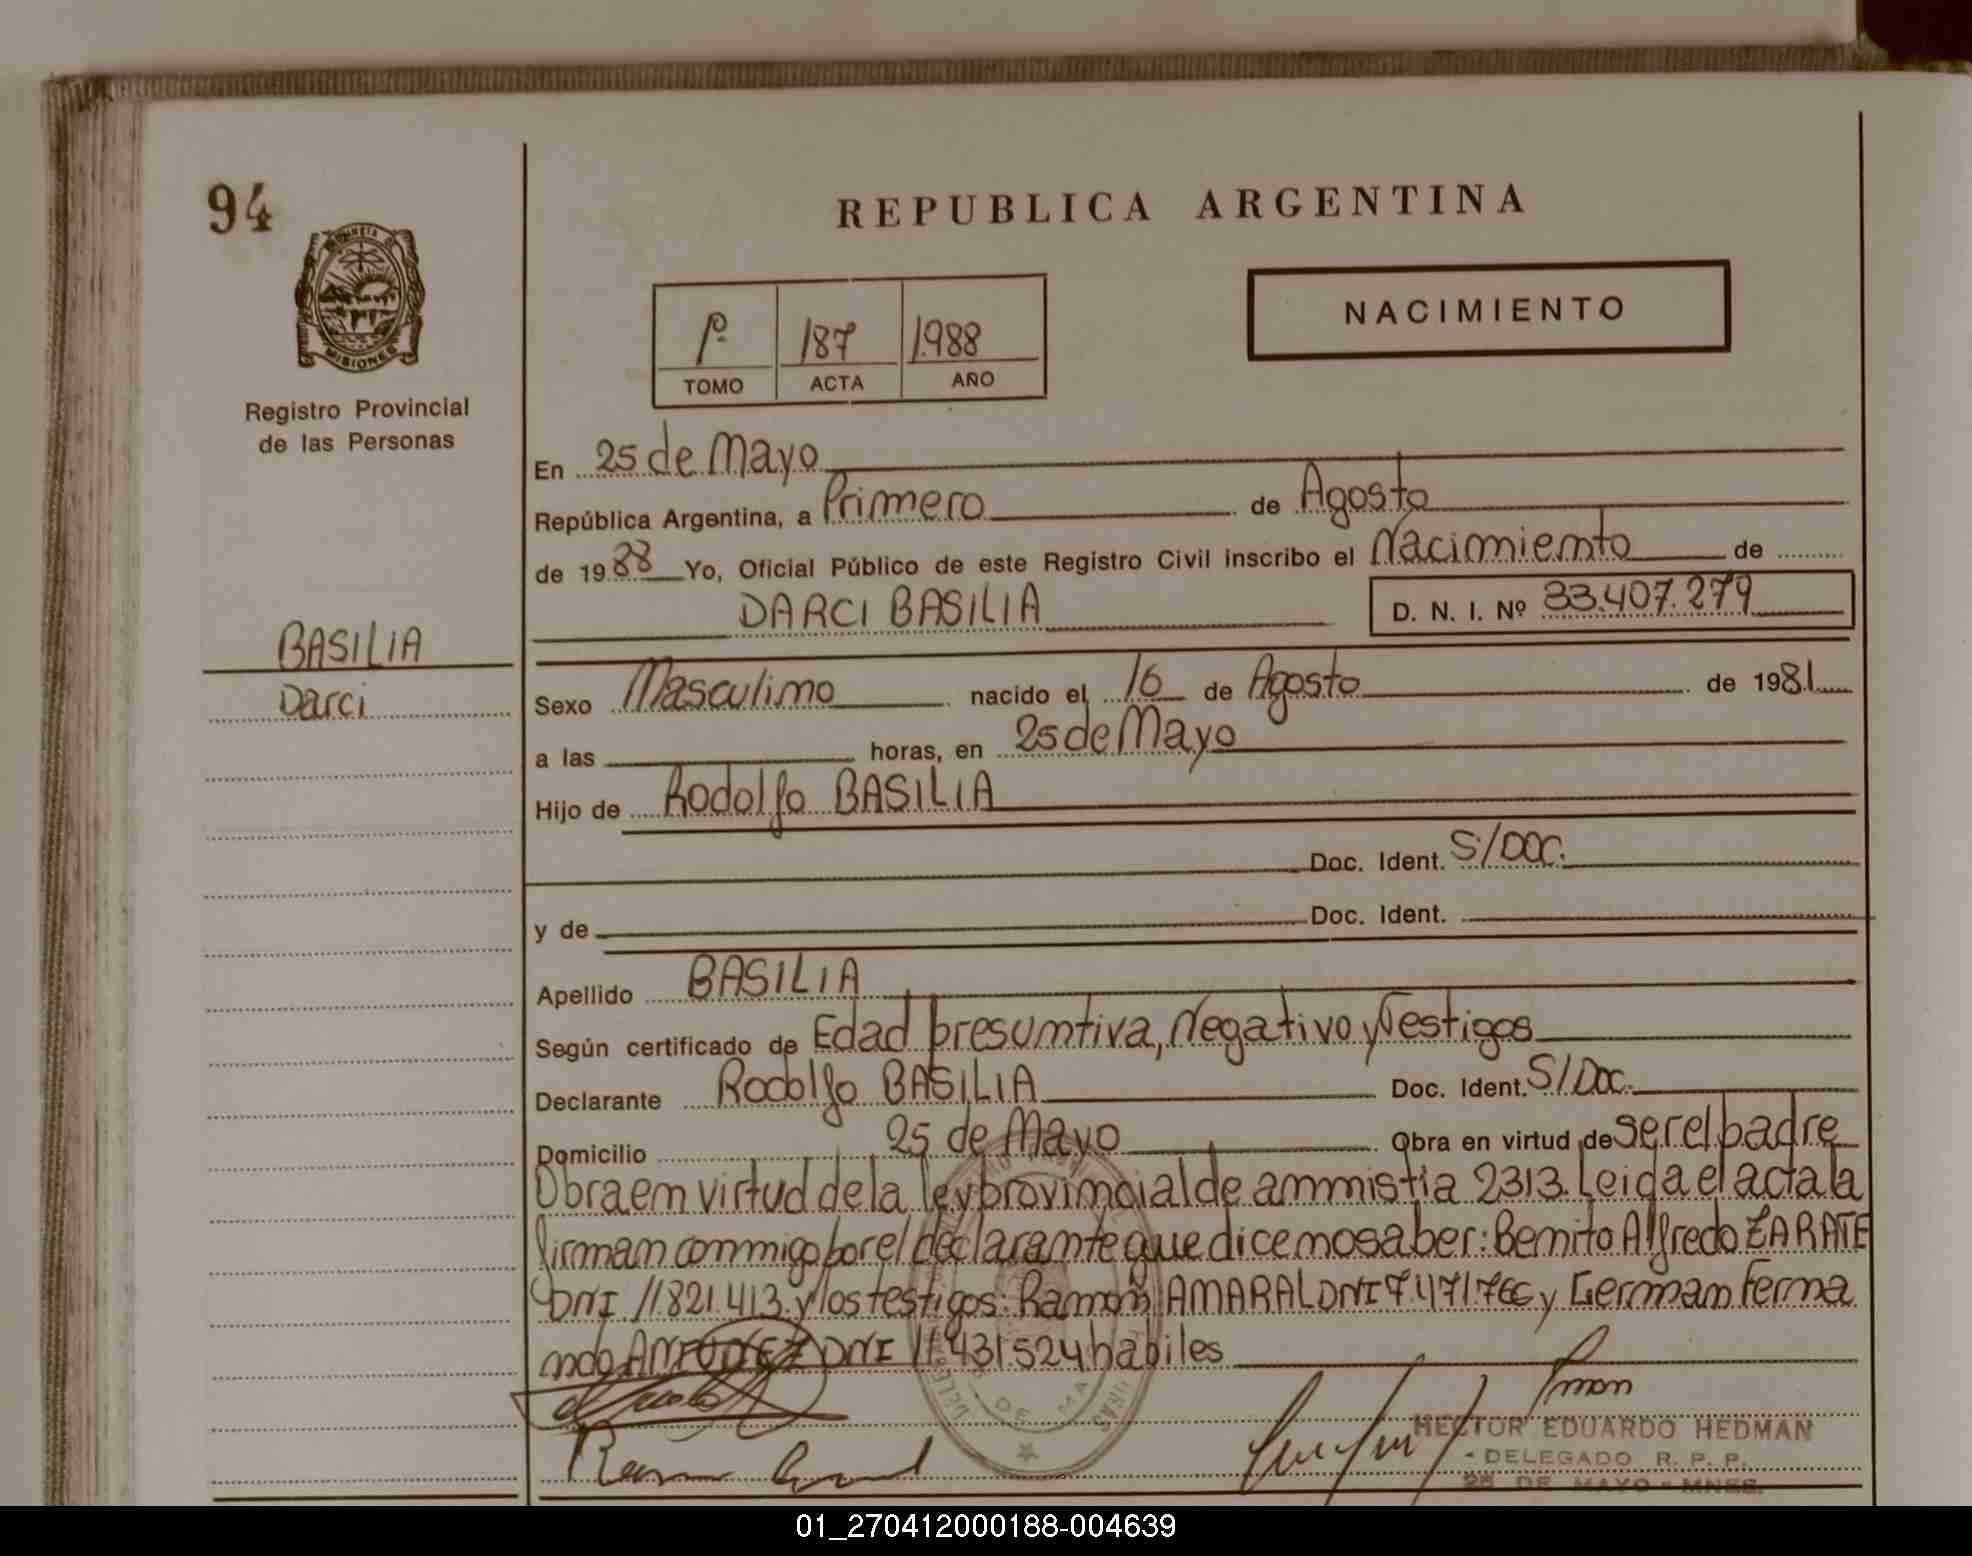 94
REPUBLICA ARGENTINA
NACIMIENTO
1º 187 1.988
TOMO ACTA AÑO
MISIONES
Registro Provincial
de las Personas
En 25 de Mayo
República Argentina, a Primero de Agosto
de 1988 Yo, Oficial Público de este Registro Civil inscribo el Nacimiento de
DARCI BASILIA D. N. I. Nº 33.407.279
BASILIA
Darci
Sexo Masculino nacido el 16 de Agosto de 1981
a las horas, en 25 de Mayo
Hijo de Rodolfo BASILIA
Doc. Ident. S/DOC.
y de Doc. Ident.
Apellido BASILIA
Según certificado de Edad presumtiva, Negativo y Testigos
Declarante Rodolfo BASILIA Doc. Ident. S/Doc.
Domicilio 25 de Mayo Obra en virtud de ser el padre
Obra en virtud de la ley provincial de ammistia 2313. Leida el acta la
firman conmigo por el declarante que dice no saber: Benito Alfredo ZARATE
DNI 11.821.413. y los testigos: Ramon AMARAL DNI 7.471.766 y German Ferna
ndo DNI 11.431.524 habiles
HECTOR EDUARDO HEDMAN
- DELEGADO R. P. P.
25 DE MAYO - MNES.
01_270412000188-004639